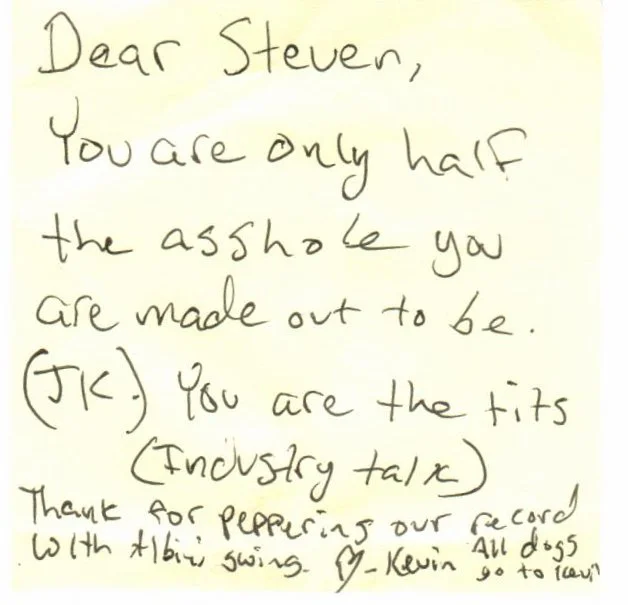 Dear Steven,
You are only half
the asshole you
are made out to be.
(JK.) You are the tits
(Industry talk)
Thank for peppering our record
With Albini swing. ♡-Kevin All dogs
go to Kevin